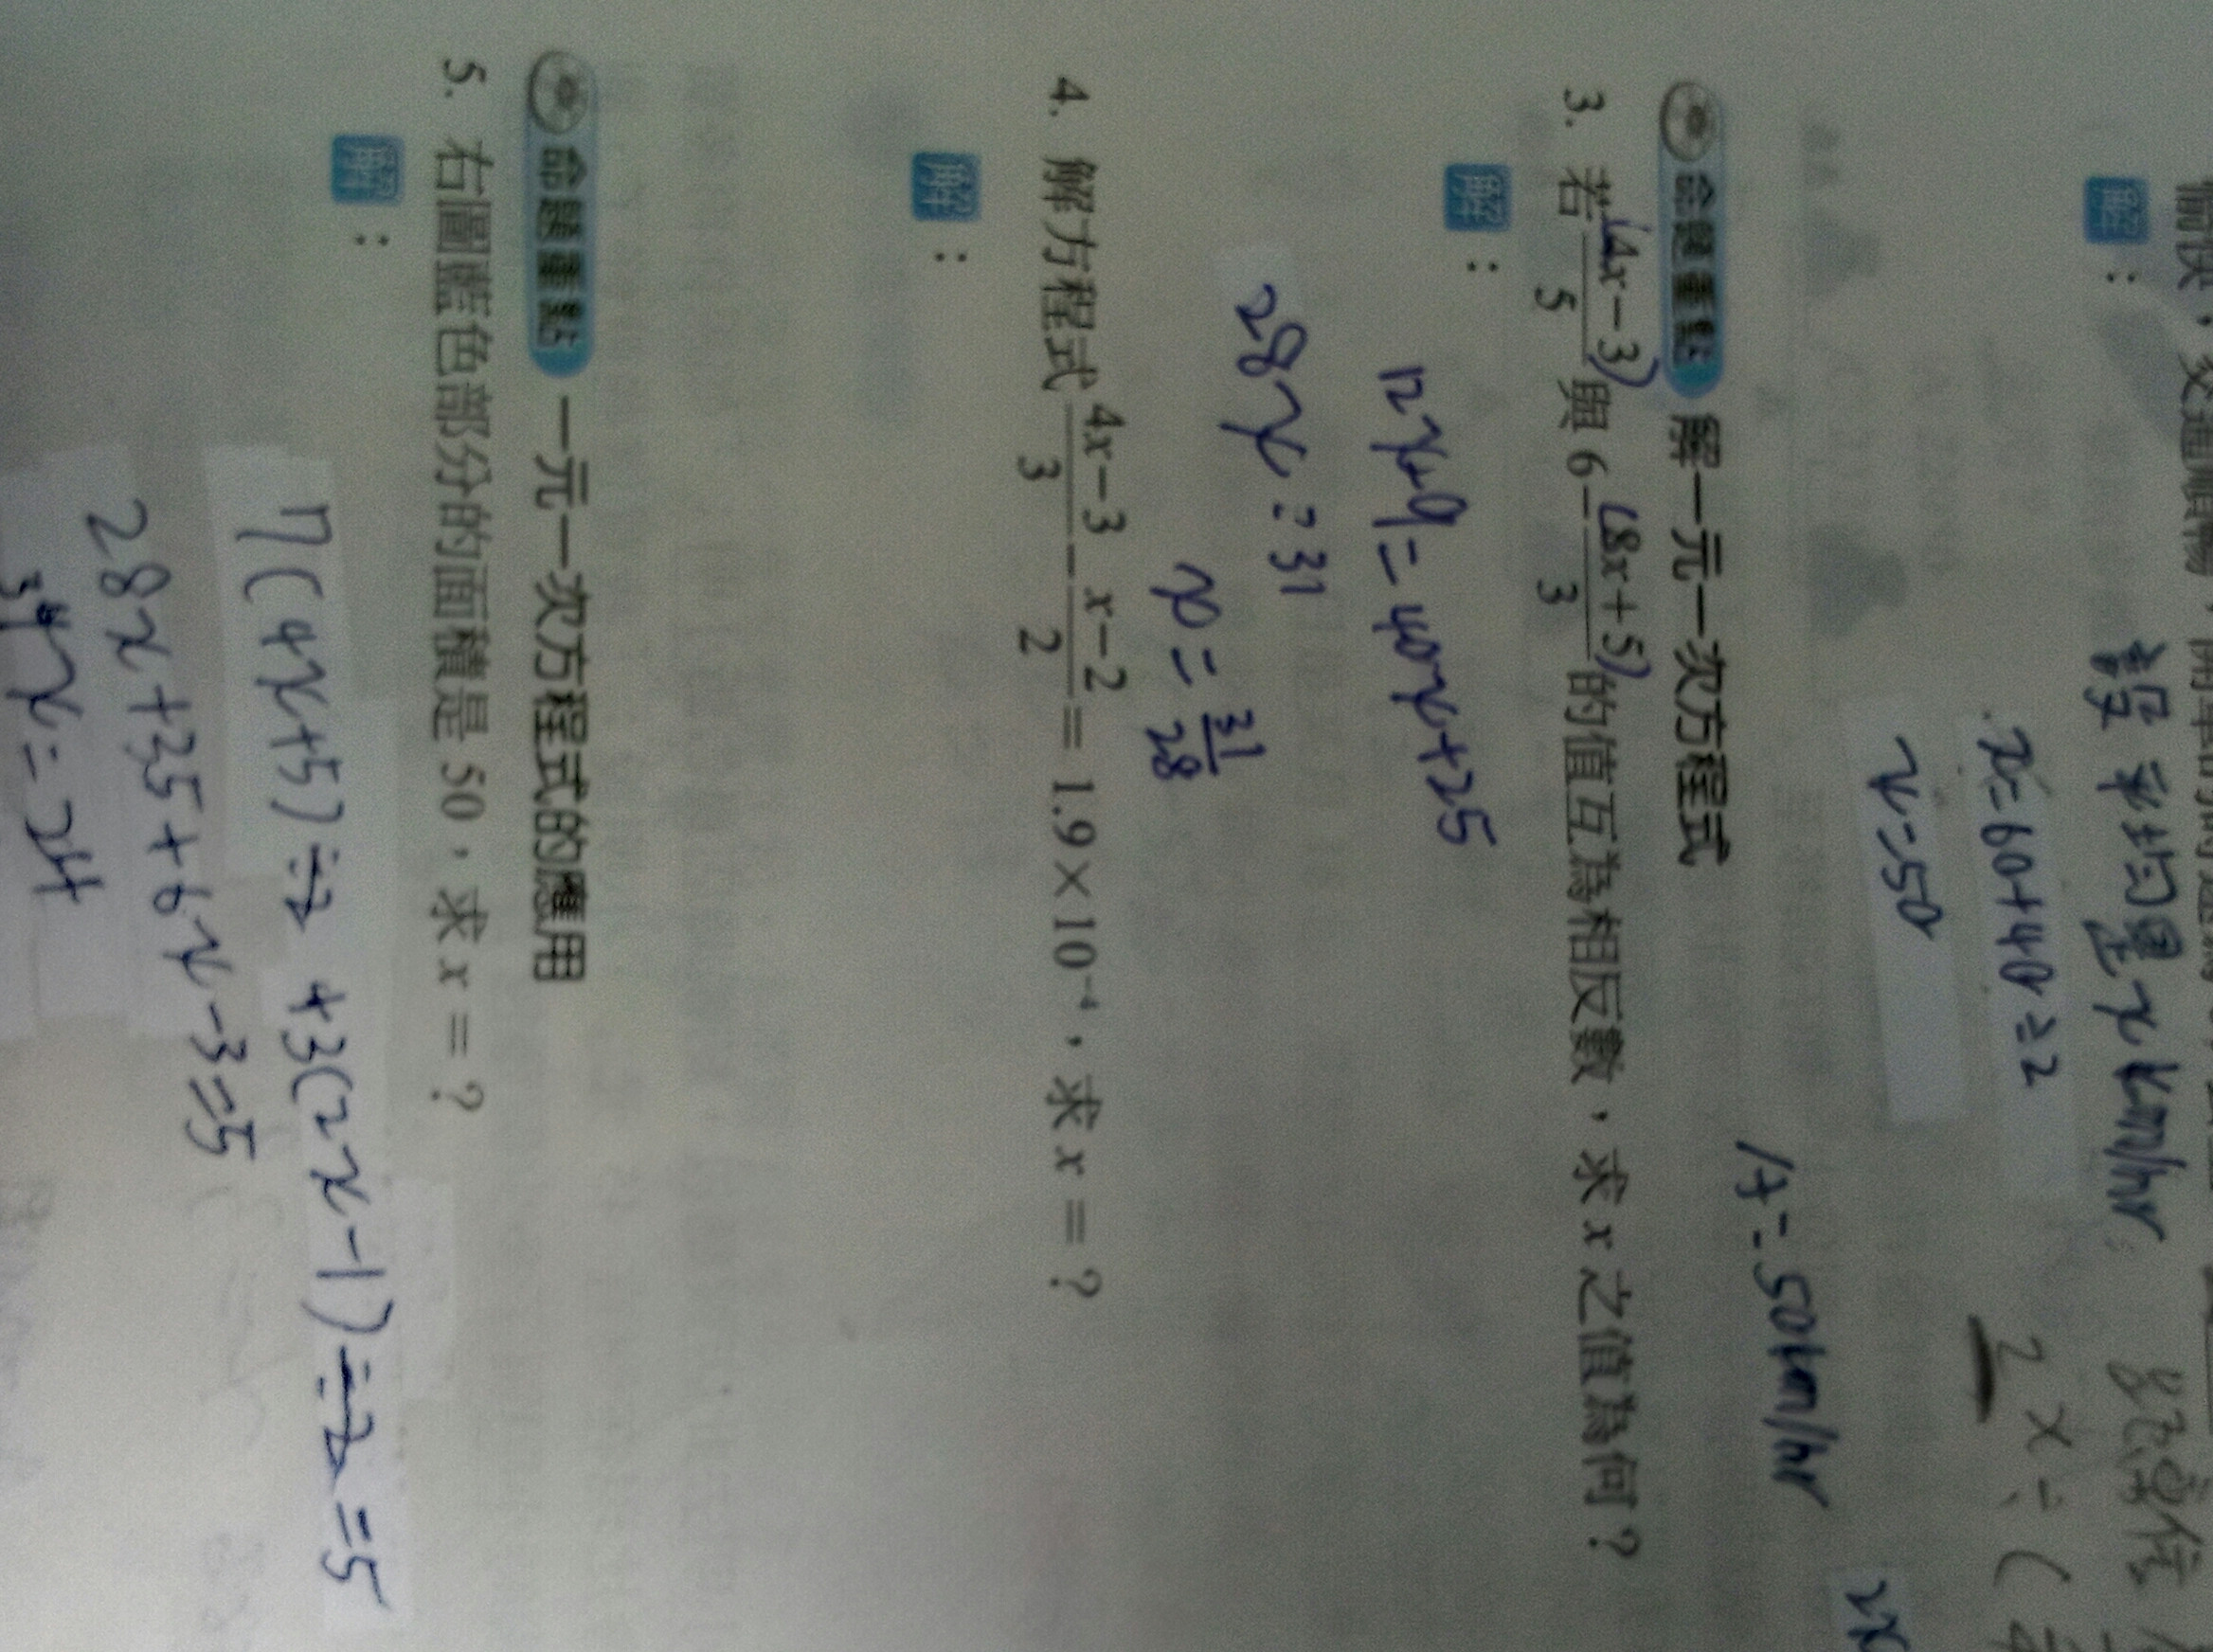 解：
設平均是x km/hr
x=60+40÷2
x=50
A=50km/hr
2x÷(
命題重點 解一元一次方程式
3. 若(4x－3)/5與6－(8x＋5)/3的值互為相反數，求x之值為何？
解：
12x+9=40x+25
28x=31
x=31/28
4. 解方程式(4x－3)/3－(x－2)/2＝1.9×10⁻⁴，求x＝？
解：
命題重點 一元一次方程式的應用
5. 右圖藍色部分的面積是50，求x＝？
解：
7(4x+5)÷2+3(2x-1)÷2=5
28x+35+6x-3=5
34x=